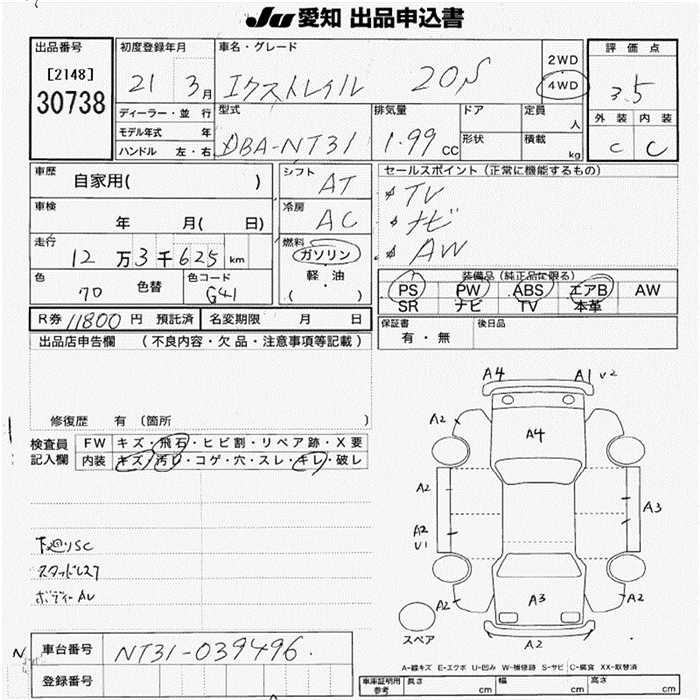 JU 愛知 出品申込書
出品番号
[2148]
30738
初度登録年月
21 3月
車名・グレード
エクストレイル 20S
2WD
4WD
評価点
3.5
外装 内装
C C
ディーラー・並行
モデル年式 年
ハンドル 左・右
型式
DBA-NT31
排気量
1.99 CC
ドア
形状
定員
人
積載
kg
車歴
自家用( )
シフト
AT
セールスポイント (正常に機能するもの)
TV
ナビ
AW
車検
年 月( 日)
冷房
AC
走行
12万3千625km
燃料
ガソリン
軽・油
( )
色
色替
色コード
G41
装備品(純正品に限る)
PS PW ABS エアB AW
SR ナビ TV 本革
R券 11800円 預託済
名変期限 月 日
保証書
有・無
後日品
出品店申告欄 (不良内容・欠品・注意事項等記載)
修復歴 有 (箇所 )
検査員
記入欄
FW キズ・飛石・ヒビ割・リペア跡・X要
内装 キズ・汚レ・コゲ・穴・スレ・キレ・破レ
下廻りSC
スタッドレス7
ボディーAU
A4 A1 U2
A2 A2
A4
A2 A3
A2
U1
A2 A3 A2
A2
スペア
A-線キズ E-エクボ U-凹み W-補修跡 S-サビ C-腐食 XX-取替済
車台番号
NT31-039496
登録番号
車庫証明用
参考
長さ cm 幅 cm 高さ cm